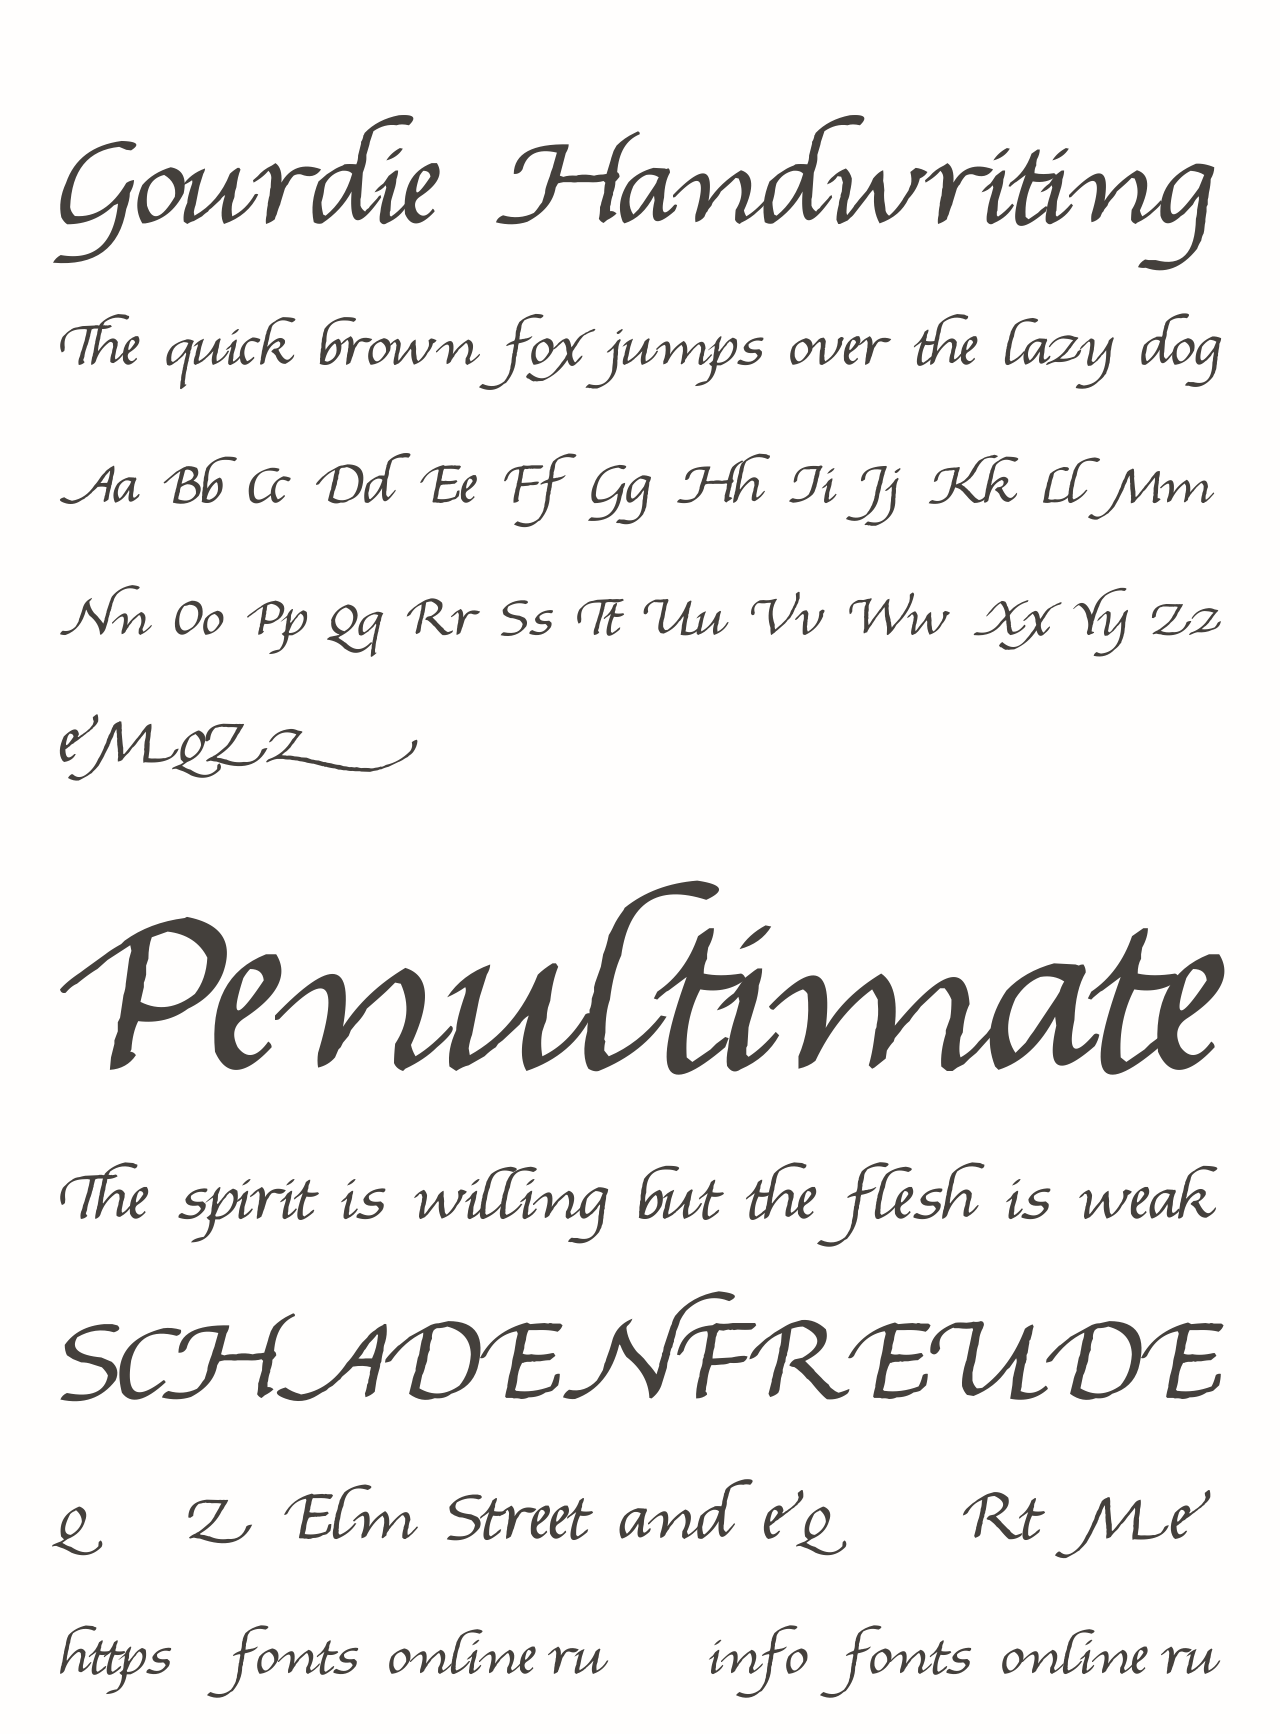 Gourdie Handwriting
The quick brown fox jumps over the lazy dog
Aa Bb Cc Dd Ee Ff Gg Hh Ii Jj Kk Ll Mm
Nn Oo Pp Qq Rr Ss Tt Uu Vv Ww Xx Yy Zz
eMQZz
Penultimate
The spirit is willing but the flesh is weak
SCHADENFREUDE
Q Z Elm Street and eQ Rt Me
https fonts online ru info fonts online ru